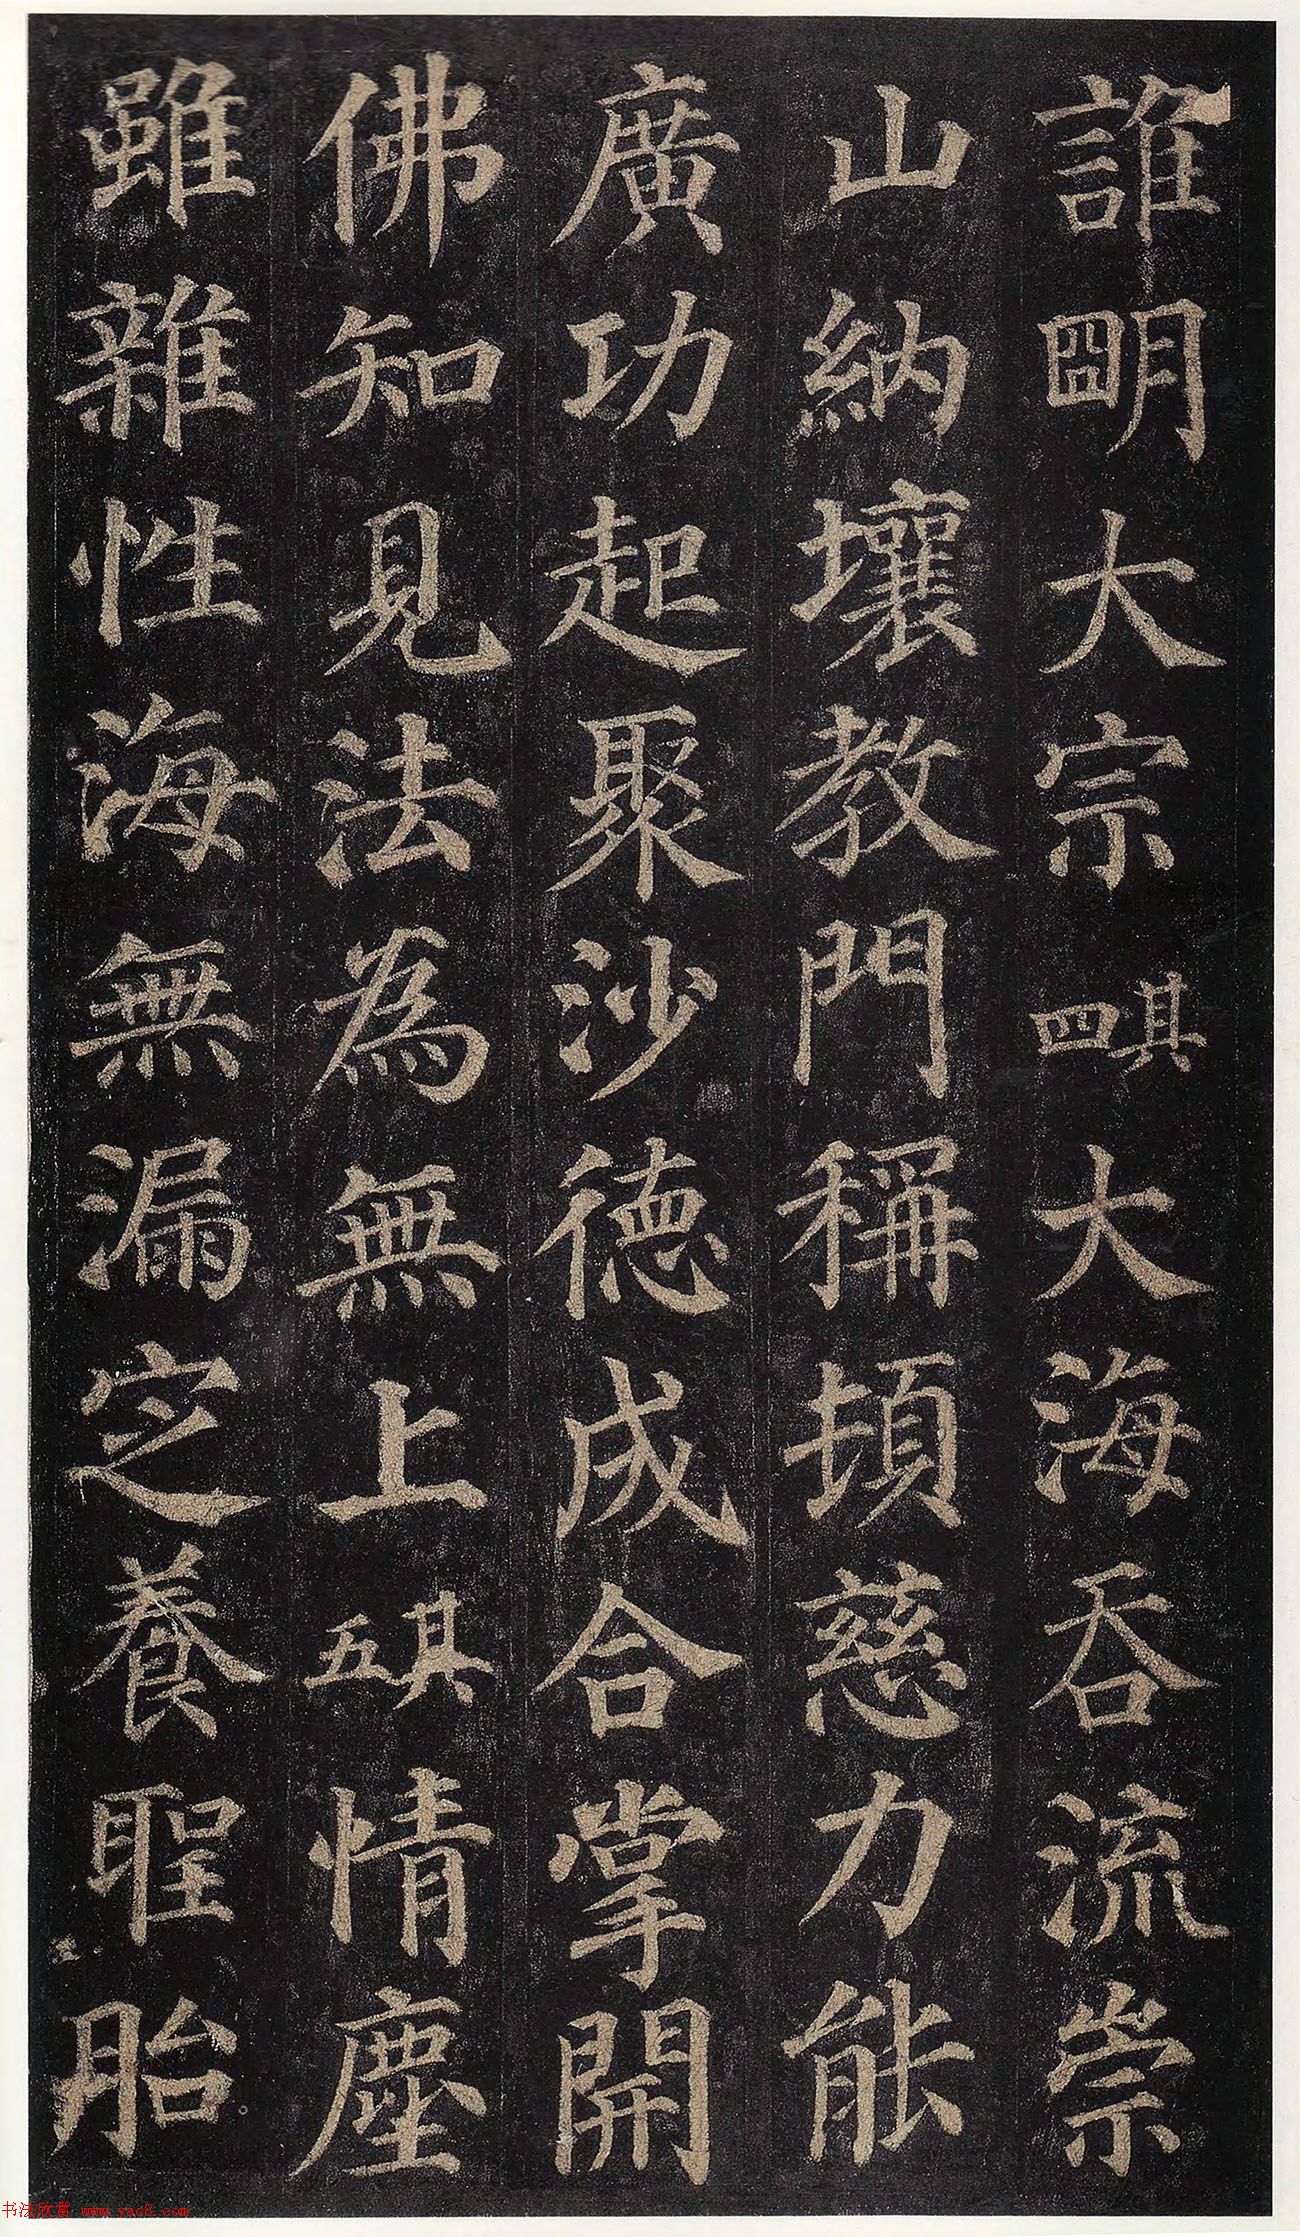 誰明大宗其四大海吞流崇
山納壤教門稱頓慈力能
廣功起聚沙德成合掌開
佛知見法為無上其五情塵
雖雜性海無漏定養聖胎
书法欣赏 www.yac8.com